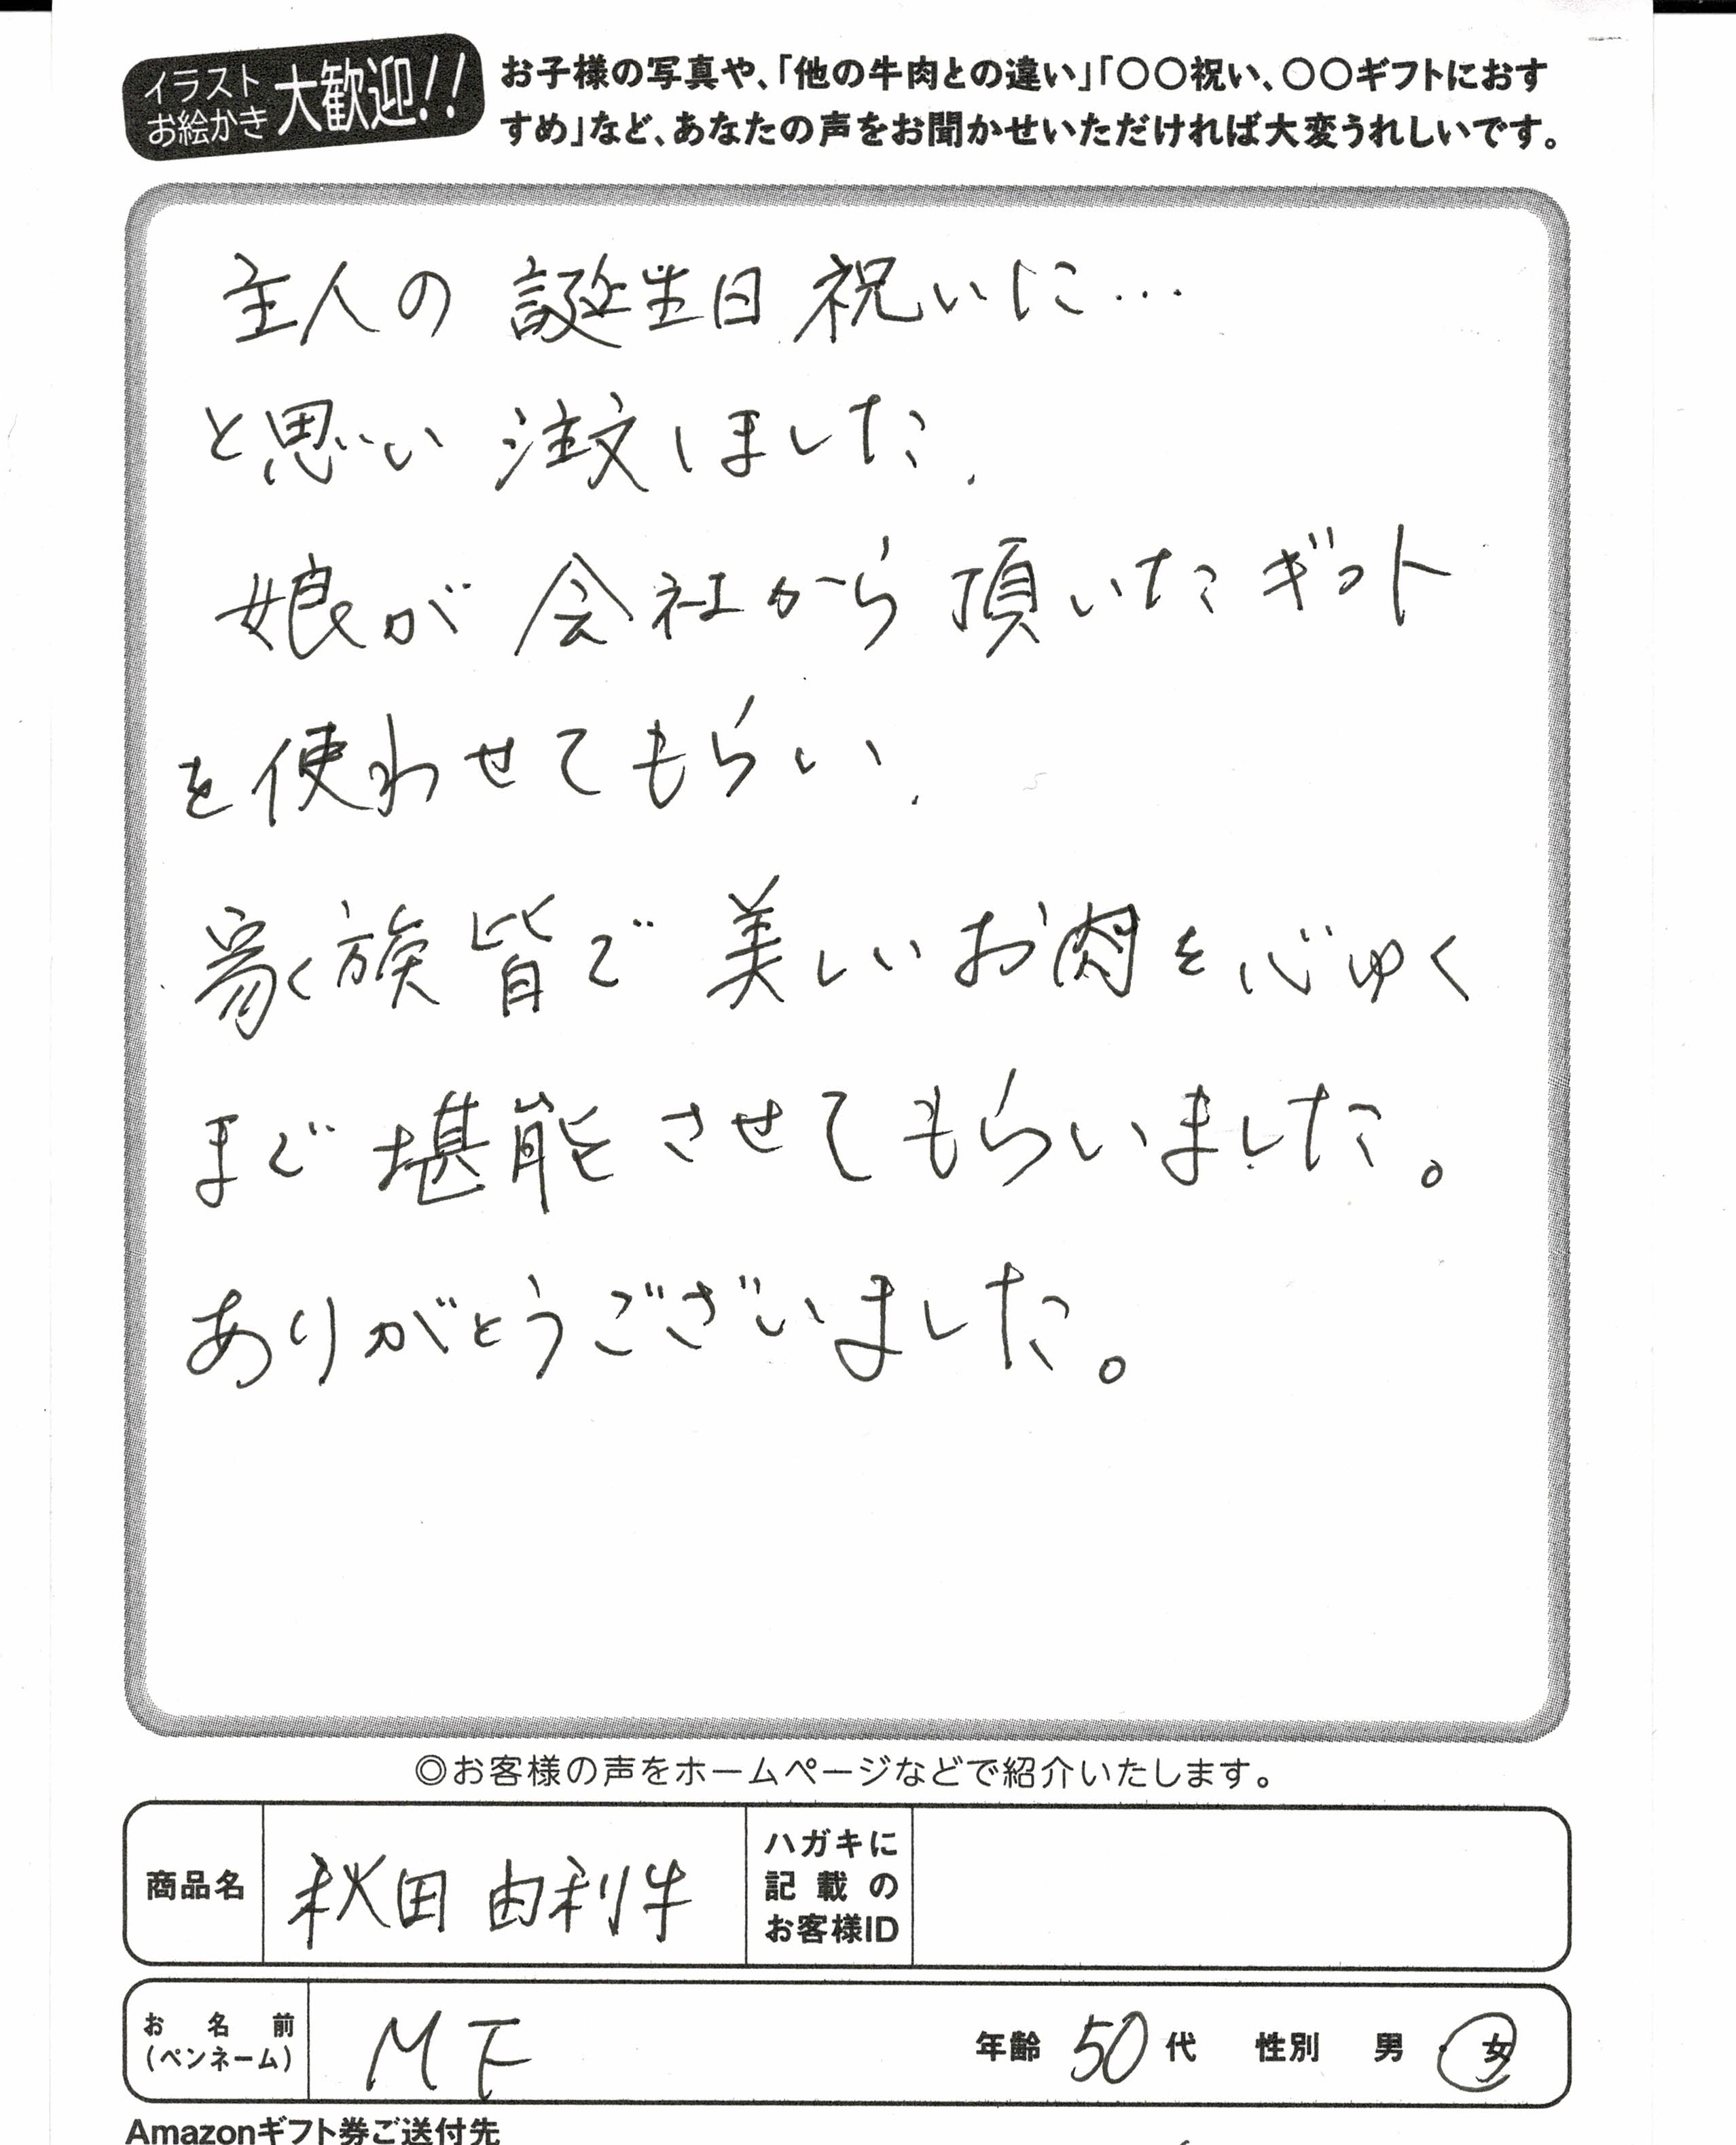 イラスト
お絵かき
大歓迎!!
お子様の写真や、「他の牛肉との違い」「〇〇祝い、〇〇ギフトにおす
すめ」など、あなたの声をお聞かせいただければ大変うれしいです。
主人の 誕生日 祝いに…
と思い 注文しました.
娘が 会社から 頂いた ギフト
を使わせてもらい.
家族皆で 美しいお肉を心ゆく
まで 堪能させてもらいました。
ありがとうございました。
◎お客様の声をホームページなどで紹介いたします。
商品名 秋田 由利牛
ハガキに
記載の
お客様ID
お名前
(ペンネーム)
MF
年齢 50 代 性別 男 ・ 女
Amazonギフト券ご送付先